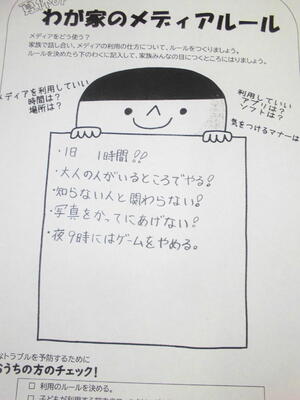 わが家のメディアルール
メディアをどう使う？
家族で話し合い、メディアの利用の仕方について、ルールをつくりましょう。
ルールを決めたら下のわくに記入して、家族みんなの目につくところにはりましょう。
メディアを利用していい
時間は？
場所は？
利用していい
アプリは？
ソフトは？
気をつけるマナーは
・1日 1時間!!
・大人の人がいるところでやる!
・知らない人と関わらない!
・写真をかってにあげない!
・夜9時にはゲームをやめる。
なトラブルを予防するために
おうちの方のチェック！
□ 利用のルールを決める。